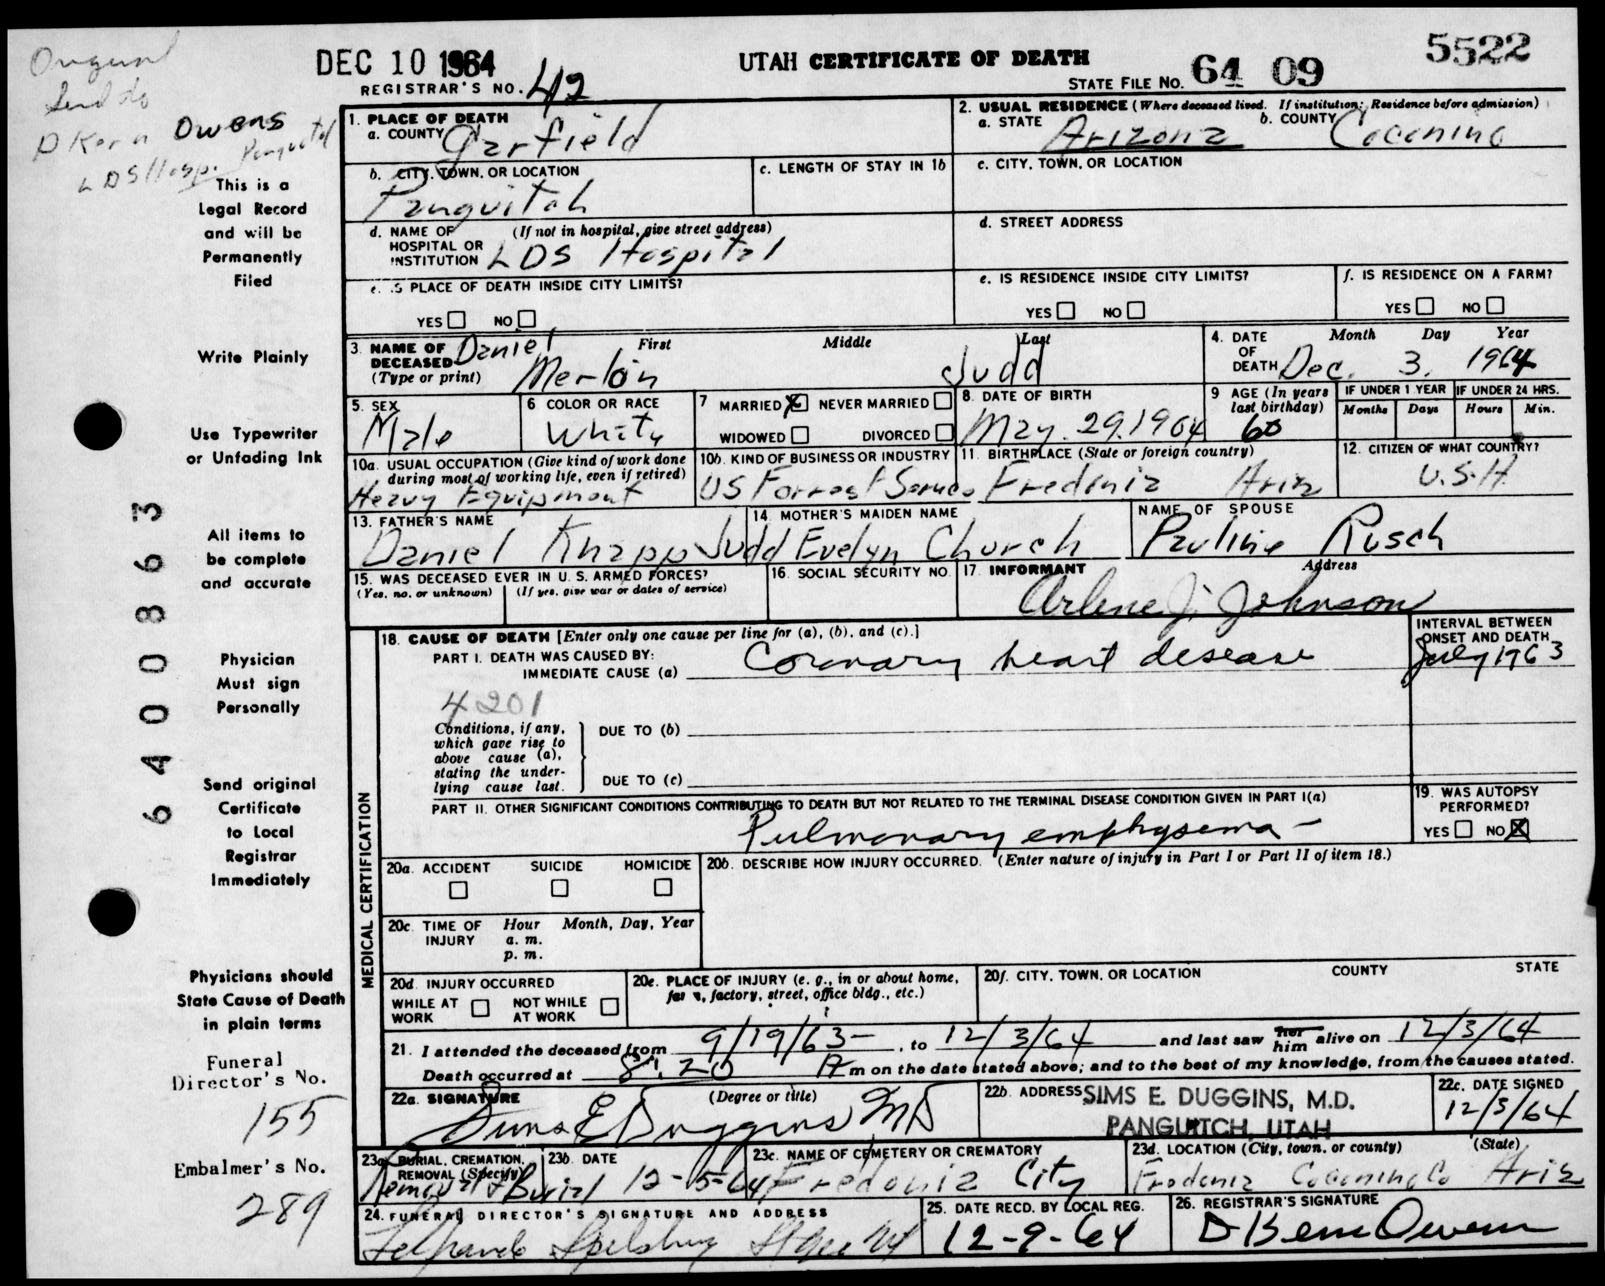 DEC 10 1964
UTAH CERTIFICATE OF DEATH
5522
REGISTRAR'S NO. 42
STATE FILE NO. 64 09
Original
Send to
Owens
LDS Hosp. Panguitch
This is a
Legal Record
and will be
Permanently
Filed
Write Plainly
Use Typewriter
or Unfading Ink
All items to
be complete
and accurate
Physician
Must sign
Personally
Send original
Certificate
to Local
Registrar
Immediately
Physicians should
State Cause of Death
in plain terms
Funeral
Director's No.
155
Embalmer's No.
289
6400863
1. PLACE OF DEATH
a. COUNTY Garfield
2. USUAL RESIDENCE (Where deceased lived. If institution: Residence before admission)
a. STATE Arizona b. COUNTY Coconino
b. CITY, TOWN, OR LOCATION
Panguitch
c. LENGTH OF STAY IN 1b
c. CITY, TOWN, OR LOCATION
d. NAME OF (If not in hospital, give street address)
HOSPITAL OR
INSTITUTION LDS Hospital
d. STREET ADDRESS
e. IS PLACE OF DEATH INSIDE CITY LIMITS?
YES NO
e. IS RESIDENCE INSIDE CITY LIMITS?
YES NO
f. IS RESIDENCE ON A FARM?
YES NO
3. NAME OF DECEASED (Type or print) First Middle Last
Daniel Merlon Judd
4. DATE OF DEATH Month Day Year
Dec. 3. 1964
5. SEX
Male
6 COLOR OR RACE
White
7 MARRIED X NEVER MARRIED
WIDOWED DIVORCED
8. DATE OF BIRTH
May. 29. 1904
9 AGE (In years last birthday)
60
IF UNDER 1 YEAR
Months Days
IF UNDER 24 HRS.
Hours Min.
10a. USUAL OCCUPATION (Give kind of work done
during most of working life, even if retired)
Heavy Equipment
10b. KIND OF BUSINESS OR INDUSTRY
US Forrest
11. BIRTHPLACE (State or foreign country)
Fredonia Ariz
12. CITIZEN OF WHAT COUNTRY?
U.S.A.
13. FATHER'S NAME
Daniel Knapp Judd
14. MOTHER'S MAIDEN NAME
Evelyn Church
NAME OF SPOUSE
Pauline Rusch
15. WAS DECEASED EVER IN U. S. ARMED FORCES?
(Yes, no, or unknown) (If yes, give war or dates of service)
16. SOCIAL SECURITY NO.
17. INFORMANT Address
Arlene J. Johnson
MEDICAL CERTIFICATION
18. CAUSE OF DEATH [Enter only one cause per line for (a), (b), and (c).]
PART I. DEATH WAS CAUSED BY:
IMMEDIATE CAUSE (a) Coronary heart desease
INTERVAL BETWEEN
ONSET AND DEATH
July 1963
4201
Conditions, if any,
which gave rise to
above cause (a),
stating the under-
lying cause last.
DUE TO (b)
DUE TO (c)
PART II. OTHER SIGNIFICANT CONDITIONS CONTRIBUTING TO DEATH BUT NOT RELATED TO THE TERMINAL DISEASE CONDITION GIVEN IN PART I(a)
Pulmonary emphysema -
19. WAS AUTOPSY
PERFORMED?
YES NO X
20a. ACCIDENT SUICIDE HOMICIDE
20b. DESCRIBE HOW INJURY OCCURRED. (Enter nature of injury in Part I or Part II of item 18.)
20c. TIME OF INJURY Hour Month, Day, Year
a. m.
p. m.
20d. INJURY OCCURRED
WHILE AT WORK NOT WHILE AT WORK
20e. PLACE OF INJURY (e. g., in or about home,
farm, factory, street, office bldg., etc.)
20f. CITY, TOWN, OR LOCATION COUNTY STATE
21. I attended the deceased from 9/19/63 - , to 12/3/64 and last saw her him alive on 12/3/64
Death occurred at 8:20 P m on the date stated above; and to the best of my knowledge, from the causes stated.
22a. SIGNATURE (Degree or title)
Sims E Duggins MD
22b. ADDRESS
SIMS E. DUGGINS, M.D.
PANGUITCH, UTAH
22c. DATE SIGNED
12/5/64
23a. BURIAL, CREMATION, REMOVAL (Specify)
Removal & Burial
23b. DATE
12-5-64
23c. NAME OF CEMETERY OR CREMATORY
Fredonia City
23d. LOCATION (City, town, or county) (State)
Fredonia Coconino Co Ariz
24. FUNERAL DIRECTOR'S SIGNATURE AND ADDRESS
25. DATE RECD. BY LOCAL REG.
12-9-64
26. REGISTRAR'S SIGNATURE
Owens